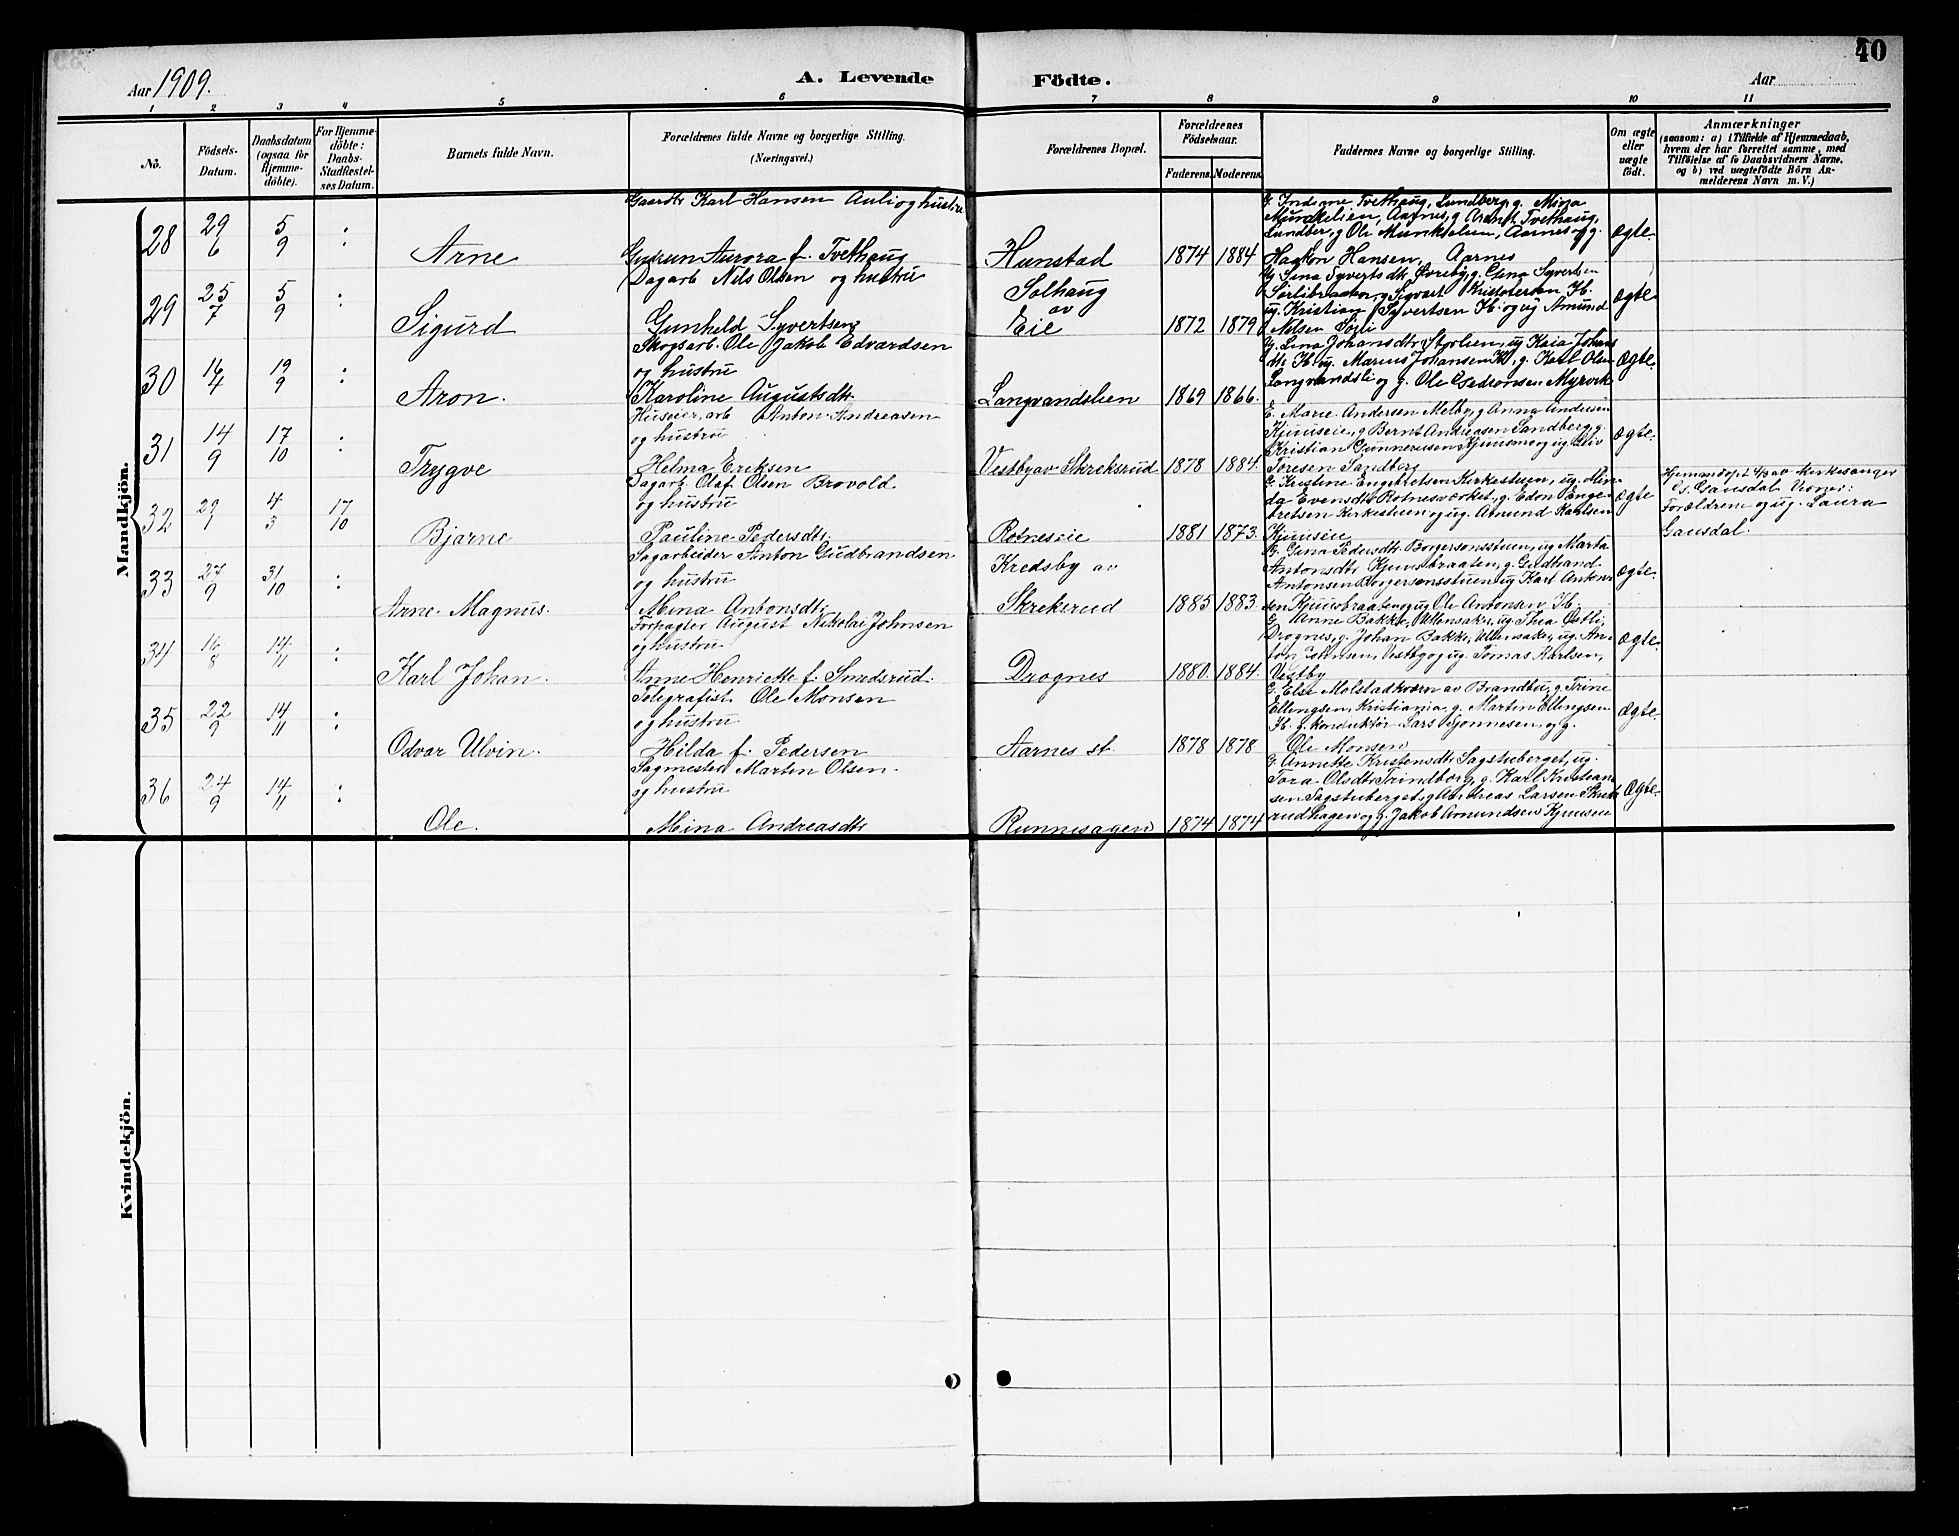 40
Aar 1909.
A. Levende Födte.
Aar
1 2 3 4 5 6 7 8 9 10 11
No.
Födsels-
Datum.
Daabsdatum
(ogsaa for
Hjemme-
döbte).
For Hjemme-
döbte:
Daabs-
Stadfæstel-
ses Datum.
Barnets fulde Navn.
Forældrenes fulde Navne og borgerlige Stilling.
(Næringsvei.)
Forældrenes Bopæl.
Forældrenes
Födselsaar.
Faderens. Moderens.
Faddernes Navne og borgerlige Stilling.
Om ægte
eller
uægte
födt.
Anmærkninger
(saasom: a) i Tilfælde af Hjemmedaab,
hvem der har forrettet samme, med
Tilföielse af to Daabsvidners Navne,
og b) ved uægtefödte Börn An-
melderens Navn m. V.)
Mandkjön.
28 29/6 5/9 : Arne
Gaardbr. Karl Hansen Auli og hustru
Gudrun Aurora f. Tvethaug
Hunstad 1874 1884
Tvethaug, Lundberg, g. Minja
Munkelien, Aarnes, g. Arndt Tvethaug,
Lundber, g Ole Munkelien, Aarnes og g.
Haakon Hansen, Aarnes
Ægte.
29 25/7 5/9 : Sigurd
Dagarb. Nils Olsen og hustru
Gunhild Syvertsen
Solhaug
av
Eie 1872 1879
Syvertsen
ug. Kristian Syvertsen Ib. og ug Amund
Nelsen Sörli
Ægte
30 16/4 19/9 : Aron.
Skogsarb. Ole Jakob Edvardsen
og hustru
Karoline Augustsdtr.
Langvandslien 1869 1866.
g. Lina Johansdtr. Styrlien, ug Kaia Johans
dtr. Ib. ug. Marius Johansen Ib., g. Karl Olsen
Langvandsli og g. Ole Myrvik
Ægte.
31 14/9 17/10 : Trygve
Huseier, arb. Anton Andreasen
og hustru
Helma Eriksen
Vestby av Skreksrud 1878 1884.
G. Marie Andersen Melby, g Anna Andersen
Kjuuseie, g Bernt Andreasen Sandberg, g.
Kristian Gunnerusen Kjuusmo og ug
Toresen Sandberg
Ægte.
32 29/1 4/3 17/10 Bjarne
Dagarb. Olaf Olsen Brovold
og hustru
Pauline Pedersdtr.
Rotneseie 1881 1873.
G. Kristine Engebretsen Kirkestuen, ug. Min-
da Evensdtr Rotnesværket, g. Edon Enge-
bretsen Kirkestuen og ug. Amund Karlsen
Kjuuseie
Ægte
Hjemmedøpt 4/3 av kirkesanger
G. Gausdal. Vidner:
Forældrene og ug. Laura
Gausdal.
33 27/9 31/10 : Arne Magnus.
Sagarbeider Anton Gudbrandsen
og hustru
Mina Antonsdtr.
Kredsby av
Skreksrud 1885 1883.
G. Gina Pedersdtr. Borgersonsstuen, ug Marta
Antonsdtr Kjuusbraaten, g. Gudbrand
Antonsen Borgersonsstuen ug Karl Anton-
sen Kjuusbraaten og ug Ole Antonsen Ib.
Ægte.
34 16/8 14/11 : Karl Johan.
Forpagter August Nikolai Johnsen
og hustru
Anne Henriette f. Smedsrud.
Drognes 1880. 1884.
G. Anne Bakke, Ullensaker, ug. Thea Østli,
Drognes, g. Johan Bakke, Ullensaker, ug. An-
ton Johnsen, Vestby og ug. Tomas Karlsen,
Vestby
Ægte.
35 22/9 14/11 : Odvar Ulvin.
Telegrafist Ole Monsen
og hustru
Hilda f. Pedersen
Aarnes st. 1878 1878
G. Else Molstadkværn av Brandbu, g. Trine
Ellingsen, Kristiania, g. Martin Ellingsen
Ib. f. konduktör Lars Sjonnesen, og g.
Ole Monsen
Ægte.
36 24/9 14/11 : Ole.
Sagmester Marten Olsen
og hustru
Mina Andreasdtr
Runnesagen 1874 1874
G. Annette Kristensdtr Sagstuberget, ug.
Tora Olsdtr. Trindborg, g. Karl Kristian-
sen Sagstuberget, g Andreas Larsen Skreks
rudhagen og g. Jakob Amundsen Kjuuseie
Ægte.
Kvindekjön.